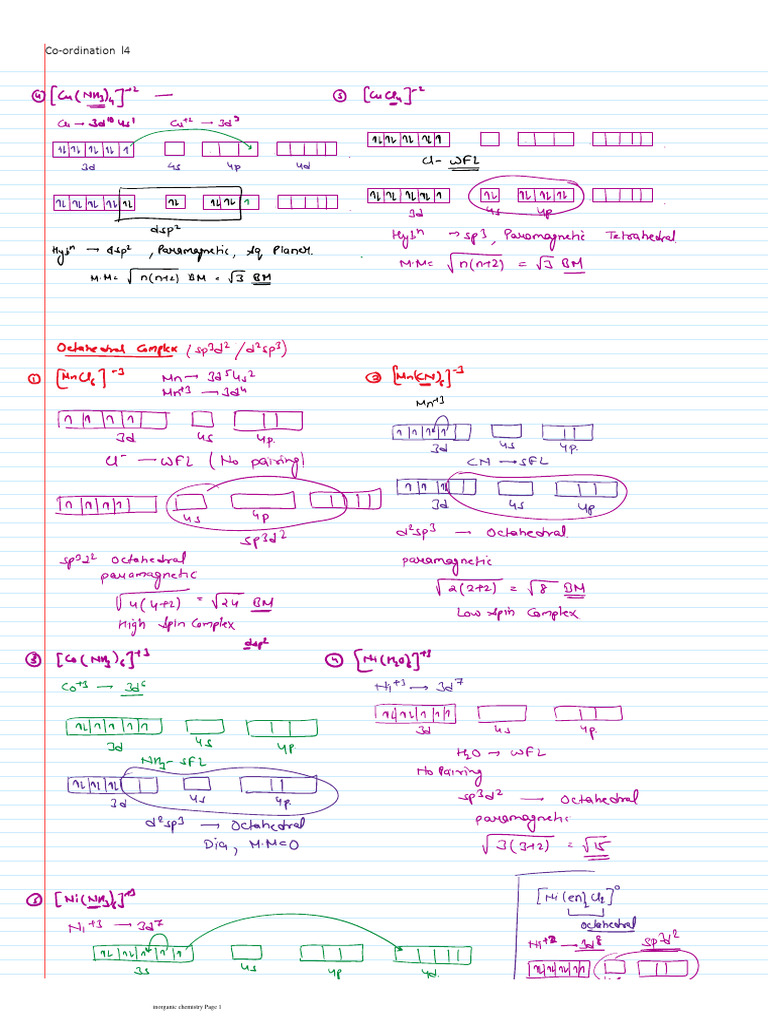 Co-ordination l4
④ [Cu(NH3)4]+2 —
Cu → 3d10 4s1 Cu+2 → 3d9
3d 4s 4p 4d
dsp2
Hybn → dsp2, Paramagnetic, Sq Planer.
M.M= √n(n+2) BM = √3 BM
⑤ [CuCl4]-2
Cl- WFL
3d 4s 4p
Hybn → sp3, Paramagnetic Tetrahedral
M.M= √n(n+2) = √3 BM
Octahedral Complex (sp3d2/d2sp3)
① [MnCl6]-3 Mn → 3d5 4s2
Mn+3 → 3d4
3d 4s 4p.
Cl- → WFL (No pairing)
4s 4p
sp3d2
sp3d2 Octahedral
paramagnetic
√4(4+2) = √24 BM
High Spin Complex
② [Mn(CN)6]-3
Mn+3
3d 4s 4p.
CN → SFL
3d 4s 4p
d2sp3 → Octahedral.
paramagnetic
√2(2+2) = √8 BM
Low Spin Complex
dsp2
③ [Co(NH3)6]+3
Co+3 → 3d6
3d 4s 4p.
NH3- SFL
3d 4s 4p.
d2sp3 → Octahedral
Dia, M.M=0
④ [Ni(H2O)6]+3
Ni+3 → 3d7
3d 4s 4p.
H2O → WFL
No Pairing
sp3d2 → Octahedral
paramagnetic
√3(3+2) = √15
⑤ [Ni(NH3)6]+3
Ni+3 → 3d7
3s 4s 4p 4d.
[Ni(en)2Cl2]0
octahedral
Ni+2 → 3d8 sp3d2
inorganic chemistry Page 1